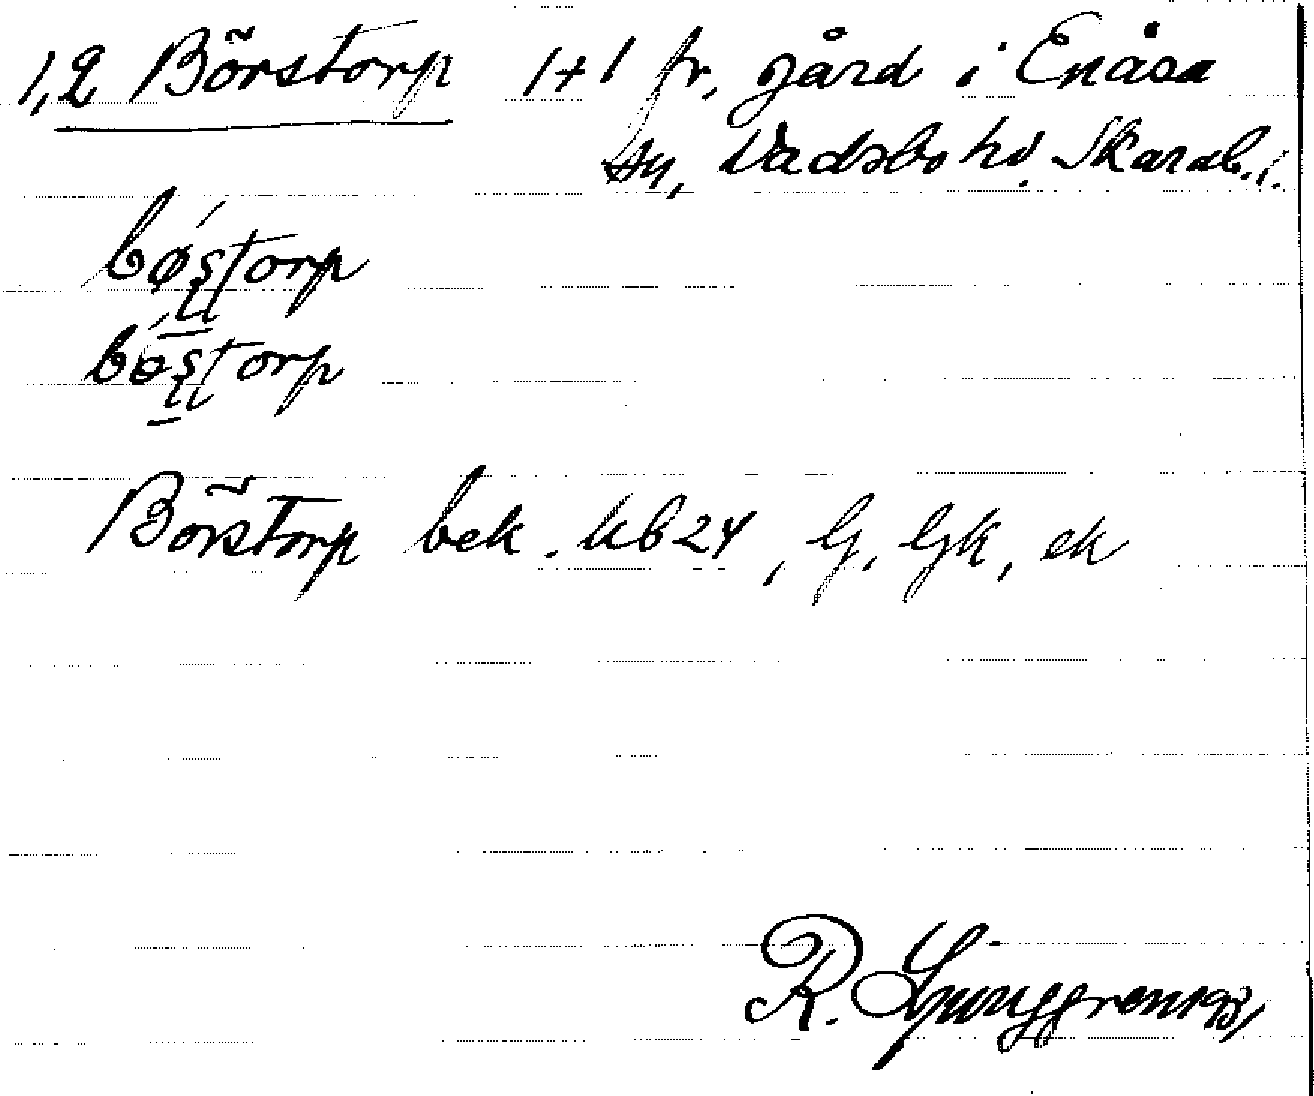 1,2 Börstorp 1+1 fr. gård i Enåsa
sn, Vadsbo hd. Skarab. l.
bǿstorp
bǿstorp
Börstorp bek. kb 24, G, Gjk, ek
R. Ljunggren 1931